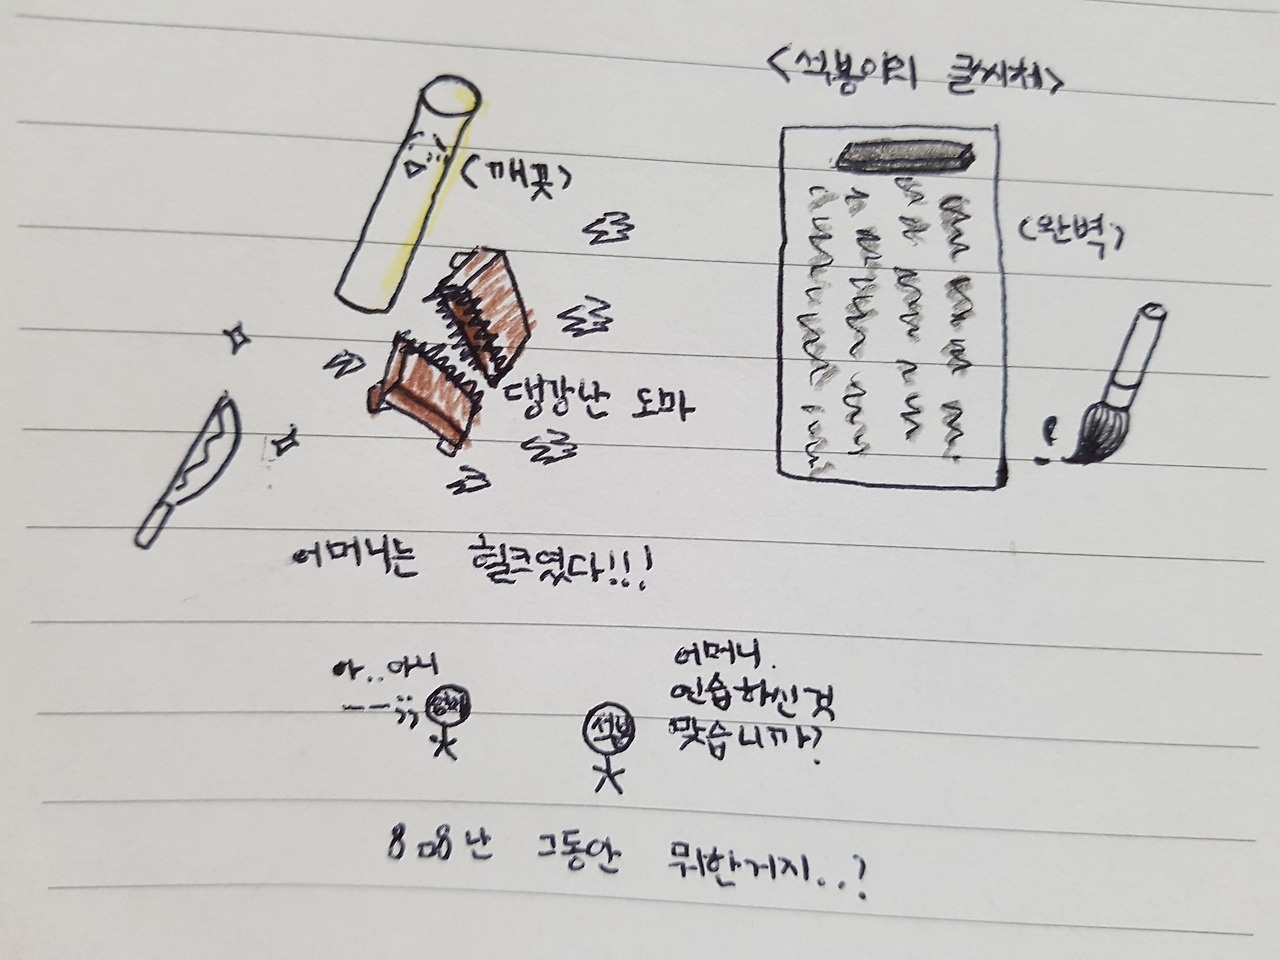 <석봉이의 글씨체>
(깨끗)
(완벽)
댕강난 도마
어머니는 헐크였다!!!
아..아니
ㅡㅡ;;
석봉
어머니.
연습하신것
맞습니까?
8ㅁ8 난 그동안 뭐한거지..?